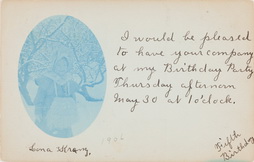 I would be pleased
to have your company
at my Birthday Party
Thursday afternoon
May 30 at 1 o'clock.
Fifth
Birthday
Lena